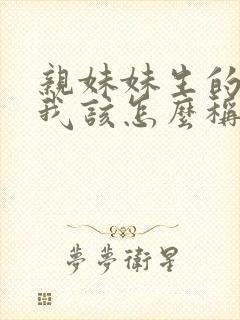 親妹妹生的
我該怎麼稱
夢夢衛星